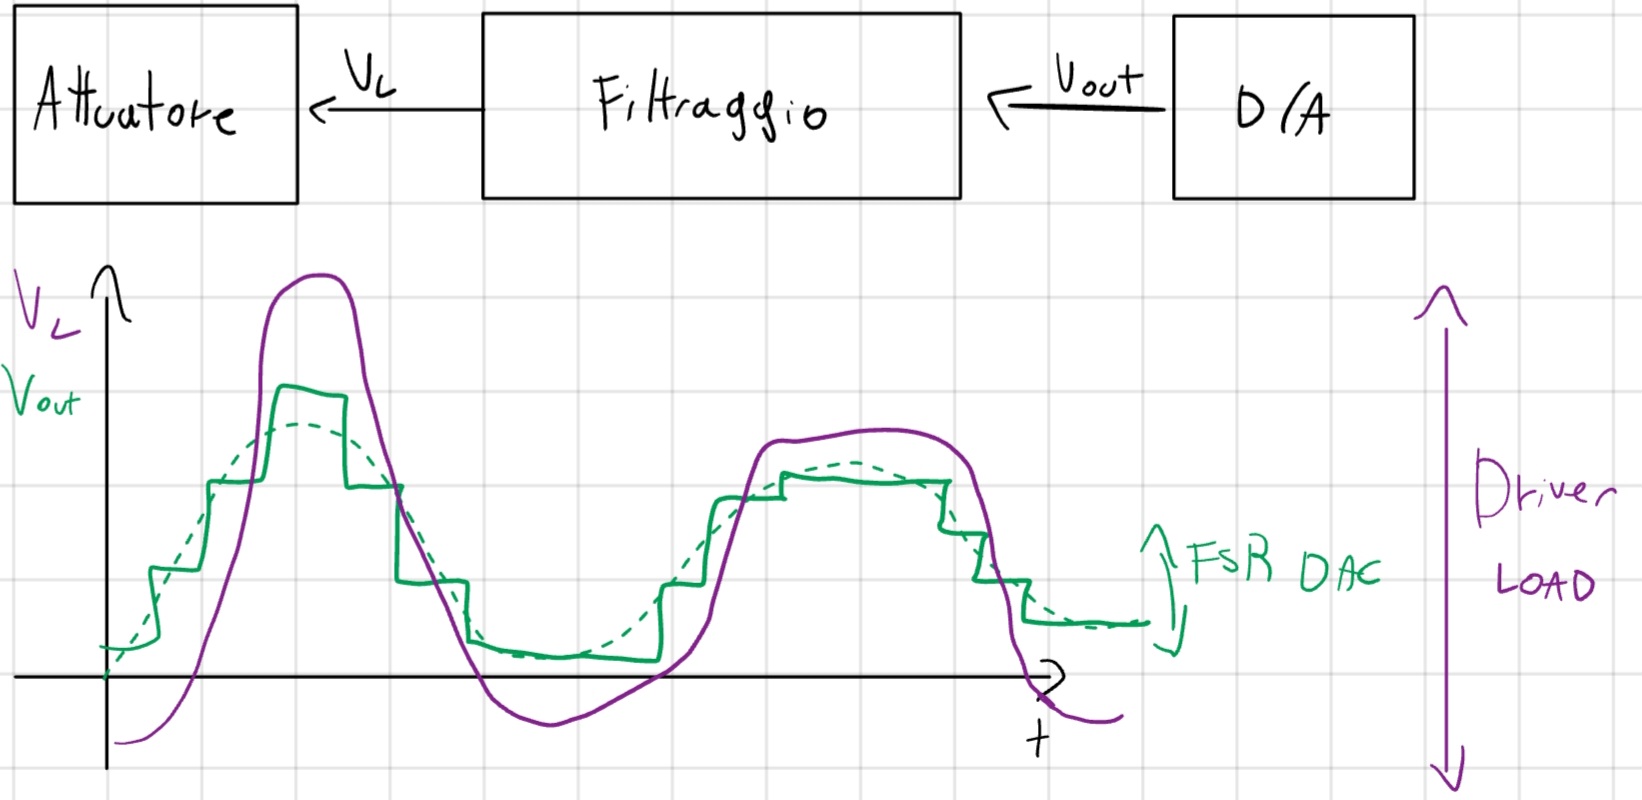 Attuatore
V_L
Filtraggio
Vout
D/A
V_L
Vout
FSR DAC
Driver
LOAD
t